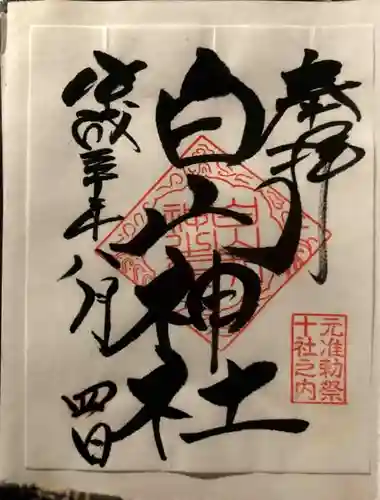 奉拝
白山神社
平成三十年八月四日
元准勅祭
十社之内